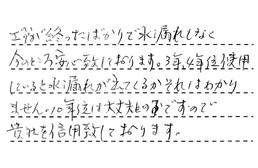 工事が終ったばかりで水漏れもなく
今のところ安心致しております。3年、4年位使用
していると水漏れが出てくるかそれはわかり
ません。10年位は大丈夫とのことですので
貴社を信用致しております。